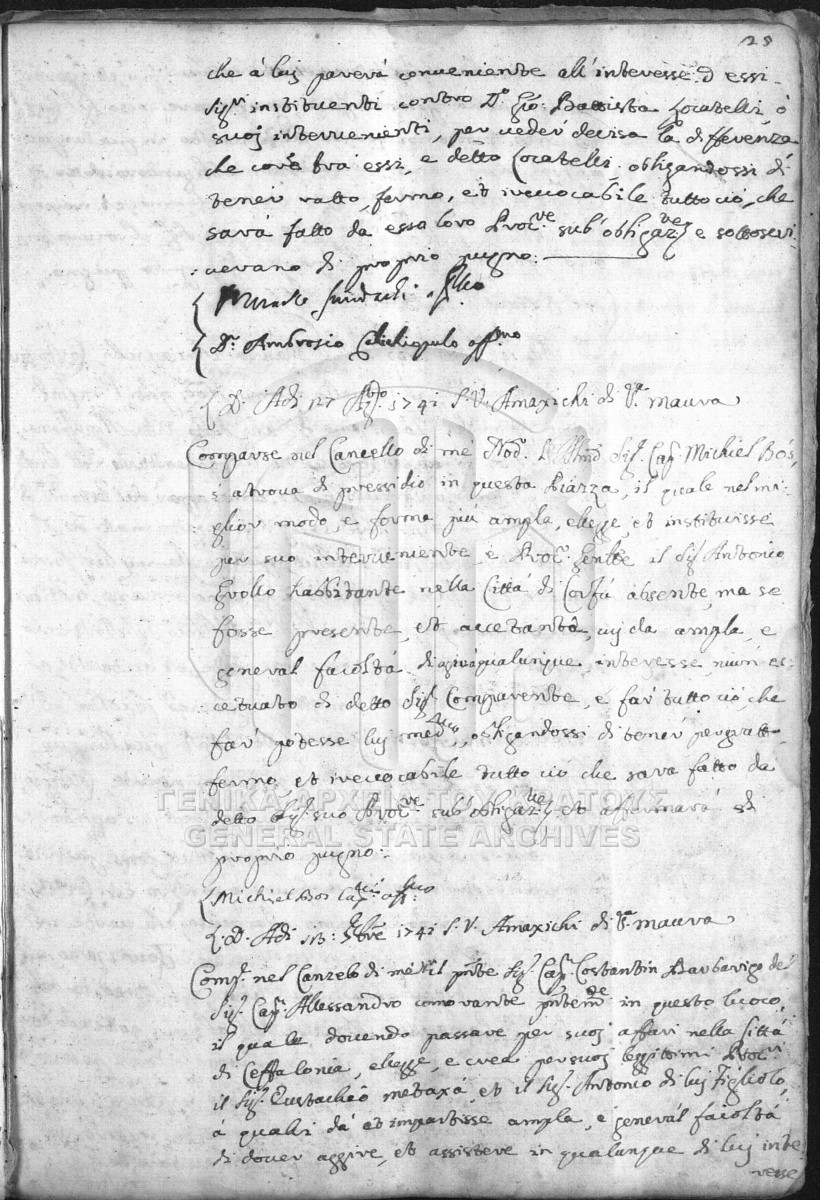 28
che à luj parerà conueniente all' interesse d' essi
Sigri instituenti contro Do Gio: Battista Locatelli, ò
suoj interuenienti, per ueder decisa la differenza
che corre trà essi, e detto Locatelli, obligandossi di
tener ratto, fermo, et ireuocabile tutto ciò, che
sarà fatto da esso loro Procre sub' obligaz: e sottoscri
ueranno di proprio pugno:
Dr Ambrosio affmo
D. Adi 27 1741 S. V. Amaxichi di Sa Maura
Comparse nel Cancello di me Nodo Sigr Capn Michiel Bos,
s' attroua di pressidio in questa Piazza, il quale nel mi-
glior modo, e forma più ampla, elegge et instituisse
per suo interueniente, e Procr il Sigr Antonio
Grollo habbitante nella Città di Corfù absente, ma se
fosse presente, et accetante, à cuj da ampla, e
general facoltà di qualunque interesse, niun ec-
cetuato di detto Sigr Comparente, e far tutto ciò che
far potesse luj medmo, obligandossi di tener per ratto
fermo, et ireuocabile tutto ciò che sarà fatto da
detto Sigr suo Procre sub' obligaz: et affermarà di
proprio pugno:
ΓΕΝΙΚΑ ΑΡΧΕΙΑ ΤΟΥ ΚΡΑΤΟΥΣ
GENERAL STATE ARCHIVES
Michiel Bos Capn affo
D. Adi 13: 1741 S. V. Amaxichi di Sa Maura
Compe nel Canzelo di me il pnte Sigr Capn Costantin Barbarigo del
Sigr Capn Alessandro comorante pntemte in questo luoco,
il quale douendo passare per suoj affari nella Città
di Ceffalonia, elegge, e crea per suoj leggittimi Procri
il Sigr Eustachio Metaxà, et il Sigr Antonio di luj Figliolo,
à quali dà et impartisse ampla, e general facoltà
di douer aggire, et assistere in qualunque di luj inte
resse